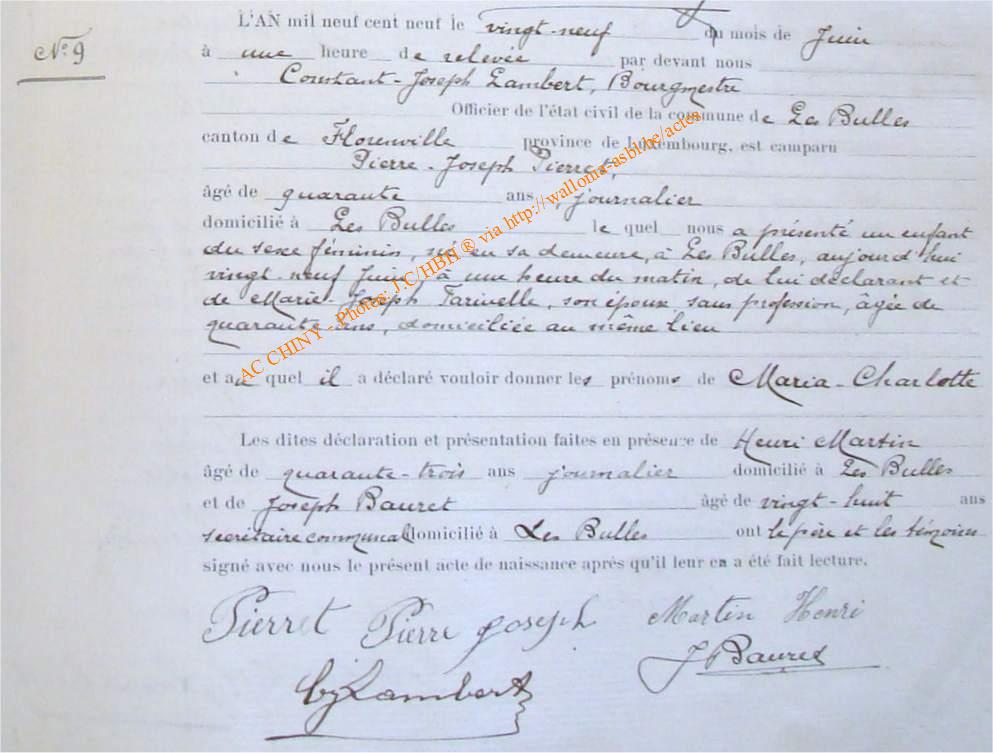 L'AN mil neuf cent neuf le vingt-neuf du mois de Juin
N° 9
à une heure de relevée par devant nous
Constant-Joseph Lambert, Bourgmestre
Officier de l'état civil de la commune de Les Bulles
canton de Florenville province de Luxembourg, est comparu
Pierre-Joseph Pierret,
âgé de quarante ans, journalier
domicilié à Les Bulles le quel nous a présenté un enfant
du sexe féminin, né en sa demeure, à Les Bulles, aujourd'hui
vingt neuf Juin, à une heure du matin, de lui déclarant et
de Marie-Joseph Farinelle, son épouse, sans profession, âgée de
quarante ans, domiciliée au même lieu
et au quel il a déclaré vouloir donner les prénoms de Maria-Charlotte
Les dites déclaration et présentation faites en présence de Henri Martin
âgé de quarante-trois ans journalier domicilié à Les Bulles
et de Joseph Bauret âgé de vingt-huit ans
secrétaire communal domicilié à Les Bulles ont le père et les témoins
signé avec nous le présent acte de naissance après qu'il leur en a été fait lecture.
Pierret Pierre joseph Martin Henri
J Bauret
CjLambert
AC CHINY - Photos: J.C/HBH ® via http://wallonia-asbl.be/actes